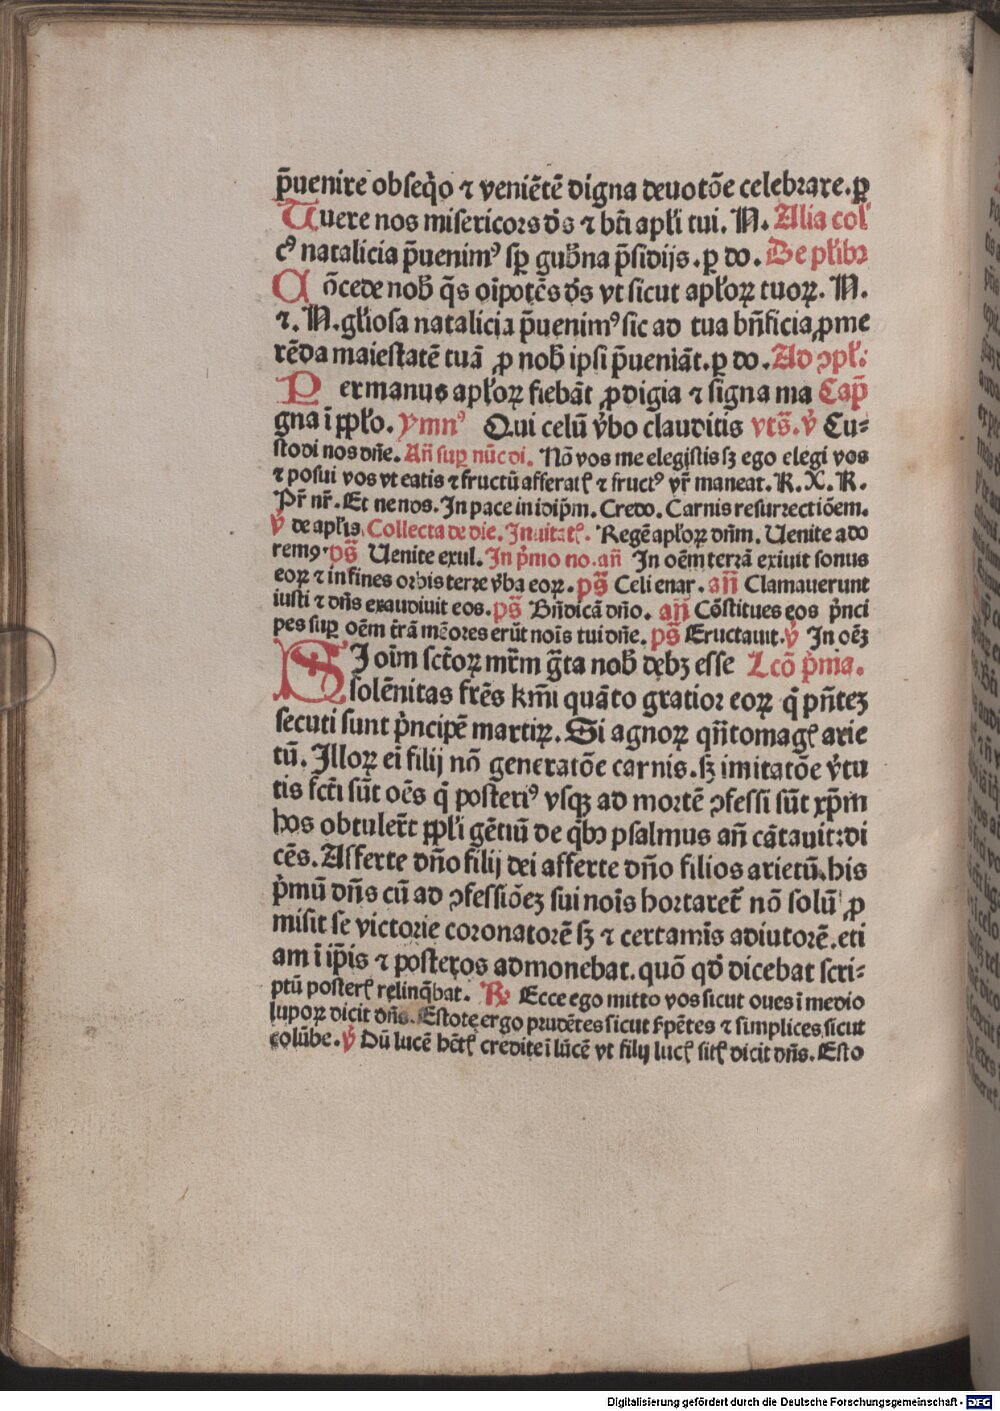 p̃uenire obseq̃o ⁊ veniẽtẽ digna deuotõe celebrare. ꝑ
Tuere nos misericors d̃s ⁊ bt̃i apl̃i tui. N. Alia col̃
cꝰ natalicia p̃uenimꝰ sꝑ gub̃na p̃sidijs. ꝑ do. De pl̃ibꝫ
Cõcede nob̃ q̃s oĩpotẽs d̃s vt sicut apl̃oꝝ tuoꝝ. N.
⁊. N. gl̃iosa natalicia p̃uenimꝰ sic ad tua bñficia ꝓme
rẽda maiestatẽ tuã ꝓ nob̃ ipsi p̃ueniãt. ꝑ do. Ad ꝯpl̃:
Per manus apl̃oꝝ fiebãt ꝓdigia ⁊ signa ma Cap̃
gna ĩ pp̃lo. ymnꝰ Qui celũ v̾bo clauditis vts̃. v̾ Cu-
stodi nos dñe. Añ suꝑ nũc di. Nõ vos me elegistis sꝫ ego elegi vos
⁊ posui vos vt eatis ⁊ fructũ afferat̃ ⁊ fructꝰ vr̃ maneat. K. X. K.
Pr̃ nr̃. Et ne nos. In pace in idip̃m. Credo. Carnis resurrectiõem.
v̾ de apl̃is. Collecta de die. Inuitat̃. Regẽ apl̃oꝝ dñm. Uenite ado
remꝰ ps̃ Uenite exul. In p̃mo no. añ In oẽm terrã exiuit sonus
eoꝝ ⁊ in fines orbis terre v̾ba eoꝝ. ps̃ Celi enar. añ Clamauerunt
iusti ⁊ dñs exaudiuit eos. ps̃ Bñdicã dño. añ Cõstitues eos p̃nci
pes suꝑ oẽm t̃rã mẽores erũt noĩs tui dñe. ps̃ Eructauit. v̾ In oẽꝫ
SI oĩm sct̃oꝝ mr̃m g̃ta nob̃ debꝫ esse Lcõ p̃ma.
solẽnitas fr̃es km̃i quãto gratior eoꝝ q̃ pñtez
secuti sunt p̃ncipẽ martiꝝ. Si agnoꝝ qñtomag̃ arie
tũ. Illoꝝ ei filij nõ generatõe carnis. sꝫ imitatõe v̾tu
tis fct̃i sũt oẽs q̃ posteriꝰ vsqꝫ ad mortẽ ꝯfessi sũt xp̃m
hos obtuler̃t pp̃l̃i gẽtiũ de q̃bꝫ psalmus añ cãtauit: di
cẽs. Afferte dño filij dei afferte dño filios arietũ. his
p̃mũ dñs cũ ad ꝯfessiõez sui noĩs hortaret̃ nõ solũ ꝓ
misit se victorie coronatorẽ sꝫ ⁊ certamĩs adiutorẽ. eti
am ĩ ip̃is ⁊ posteros admonebat. quõ qd̃ dicebat scri-
ptũ poster̃ relinq̃bat. ℟ Ecce ego mitto vos sicut oues ĩ medio
lupoꝝ dicit dñs. Estote ergo prudẽtes sicut s̃pẽtes ⁊ simplices sicut
colũbe. v̾ Dũ lucẽ hẽt̃ credite ĩ lũcẽ vt filij luc̃ sit̃ dicit dñs. Esto
Digitalisierung gefördert durch die Deutsche Forschungsgemeinschaft - DFG